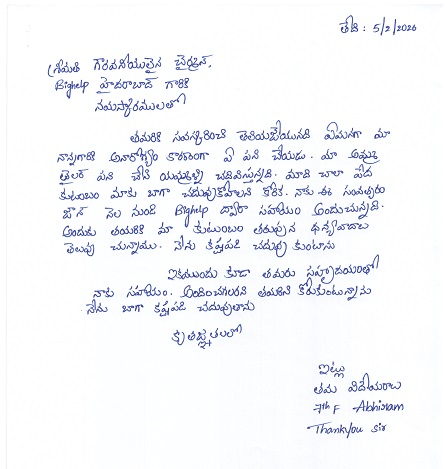 తేది : 5/2/2026
శ్రీమతి గౌరవనీయులైన చైర్మన్,
Bighelp హైదరాబాద్ గారికి
నమస్కారములతో
తమరికి నమస్కరించి తెలియజేయునది ఏమనగా మా
నాన్నగారికి అనారోగ్యం కారణంగా ఏ పని చేయడు. మా అమ్మ
టైలర్ పని చేసి మమ్మల్ని చదివిస్తున్నది. మాది చాలా పేద
కుటుంబం మాకు బాగా చదువుకోవాలని కోరిక. నాకు ఈ సంవత్సరం
జూన్ నెల నుండి Bighelp ద్వారా సహాయం అందుచున్నది.
అందుకు తమరికి మా కుటుంబం తరుపున ధన్యవాదాలు
తెలుపు చున్నాము. నేను కష్టపడి చదువు కుంటాను
ఇకముందు కూడా తమరు సహృదయంతో
నాకు సహాయం. అందించగలరని తమరిని కోరుకుంటున్నాను
నేను బాగా కష్టపడి చదువుతాను
కృతజ్ఞతలతో
ఇట్లు
తమ విదేయరాలు
7th F Abhiram
Thankyou sir